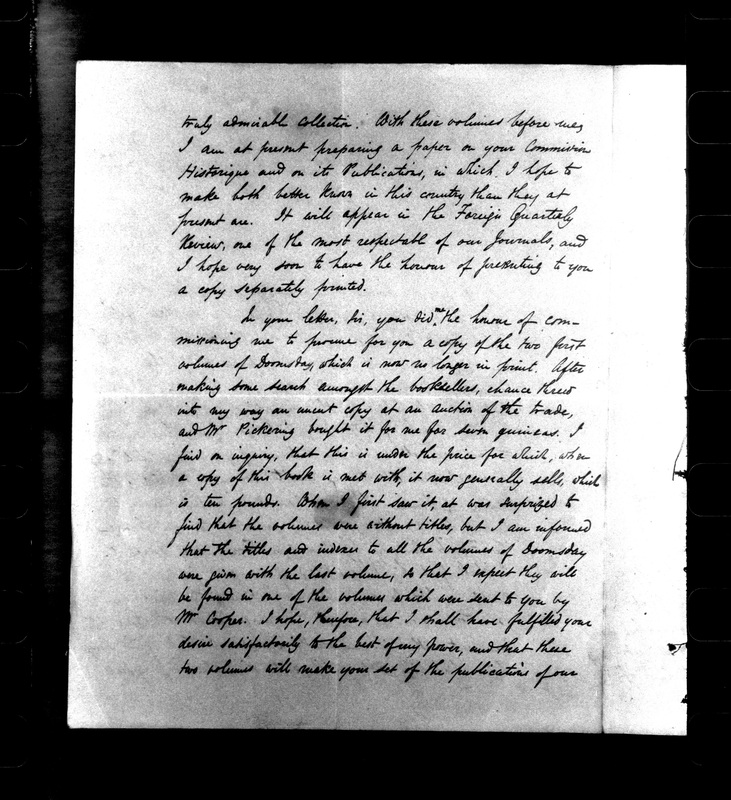 truly admirable collection. With these volumes before me,
I am at present preparing a paper on your Commission
Historique and on its Publications, in which I hope to
make both better known in this country than they at
present are. It will appear in the Foreign Quarterly
Review, one of the most respectable of our Journals, and
I hope very soon to have the honour of presenting to you
a copy separately printed.
In your letter, Sir, you did me the honour of com-
missioning me to procure for you a copy of the two first
volumes of Doomsday, which is now no longer in print. After
making some search amongst the booksellers, chance threw
into my way an uncut copy at an auction of the trade,
and Mr Pickering bought it for me for seven guineas. I
find on inquiry, that this is under the price for which, when
a copy of this book is met with, it now generally sells, which
is ten pounds. When I first saw it, at was surprized to
find that the volumes were without titles, but I am informed
that the titles and indexes to all the volumes of Doomsday
were given with the last volume, so that I expect they will
be found in one of the volumes which were sent to you by
Mr Cooper. I hope, therefore, that I shall have fulfilled your
desire satisfactorily to the best of my power, and that these
two volumes will make your set of the publications of our